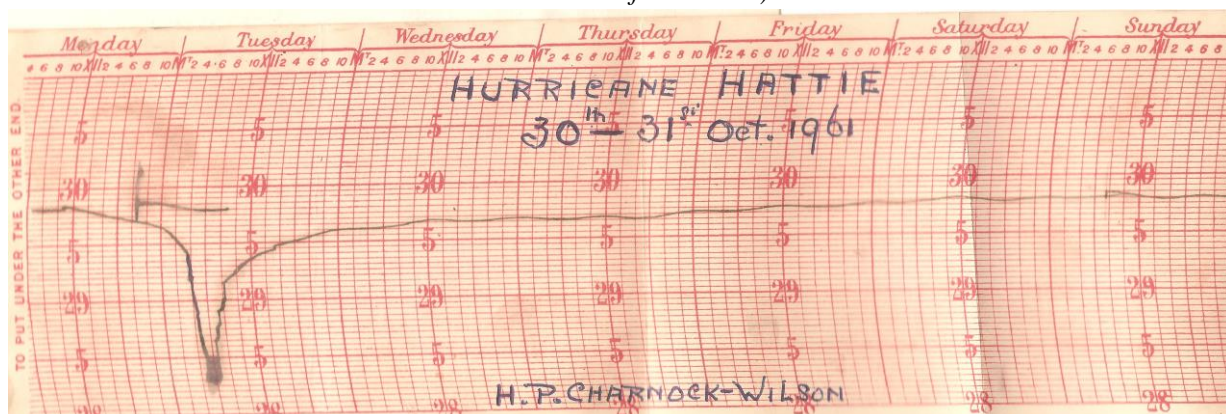 Monday Tuesday Wednesday Thursday Friday Saturday Sunday
4 6 8 10 XII 2 4 6 8 10 MT. 2 4 6 8 10 XII 2 4 6 8 10 MT. 2 4 6 8 10 XII 2 4 6 8 10 MT. 2 4 6 8 10 XII 2 4 6 8 10 MT. 2 4 6 8 10 XII 2 4 6 8 10 MT. 2 4 6 8 10 XII 2 4 6 8 10 MT. 2 4 6 8 10 XII 2 4 6 8
HURRICANE HATTIE
30th - 31st Oct. 1961
5 5 5 5 5 5 5
30 30 30 30 30 30 30
5 5 5 5 5 5 5
29 29 29 29 29 29 29
5 5 5 5 5 5 5
H.P. CHARNOCK-WILSON
28 28 28 28
TO PUT UNDER THE OTHER END.